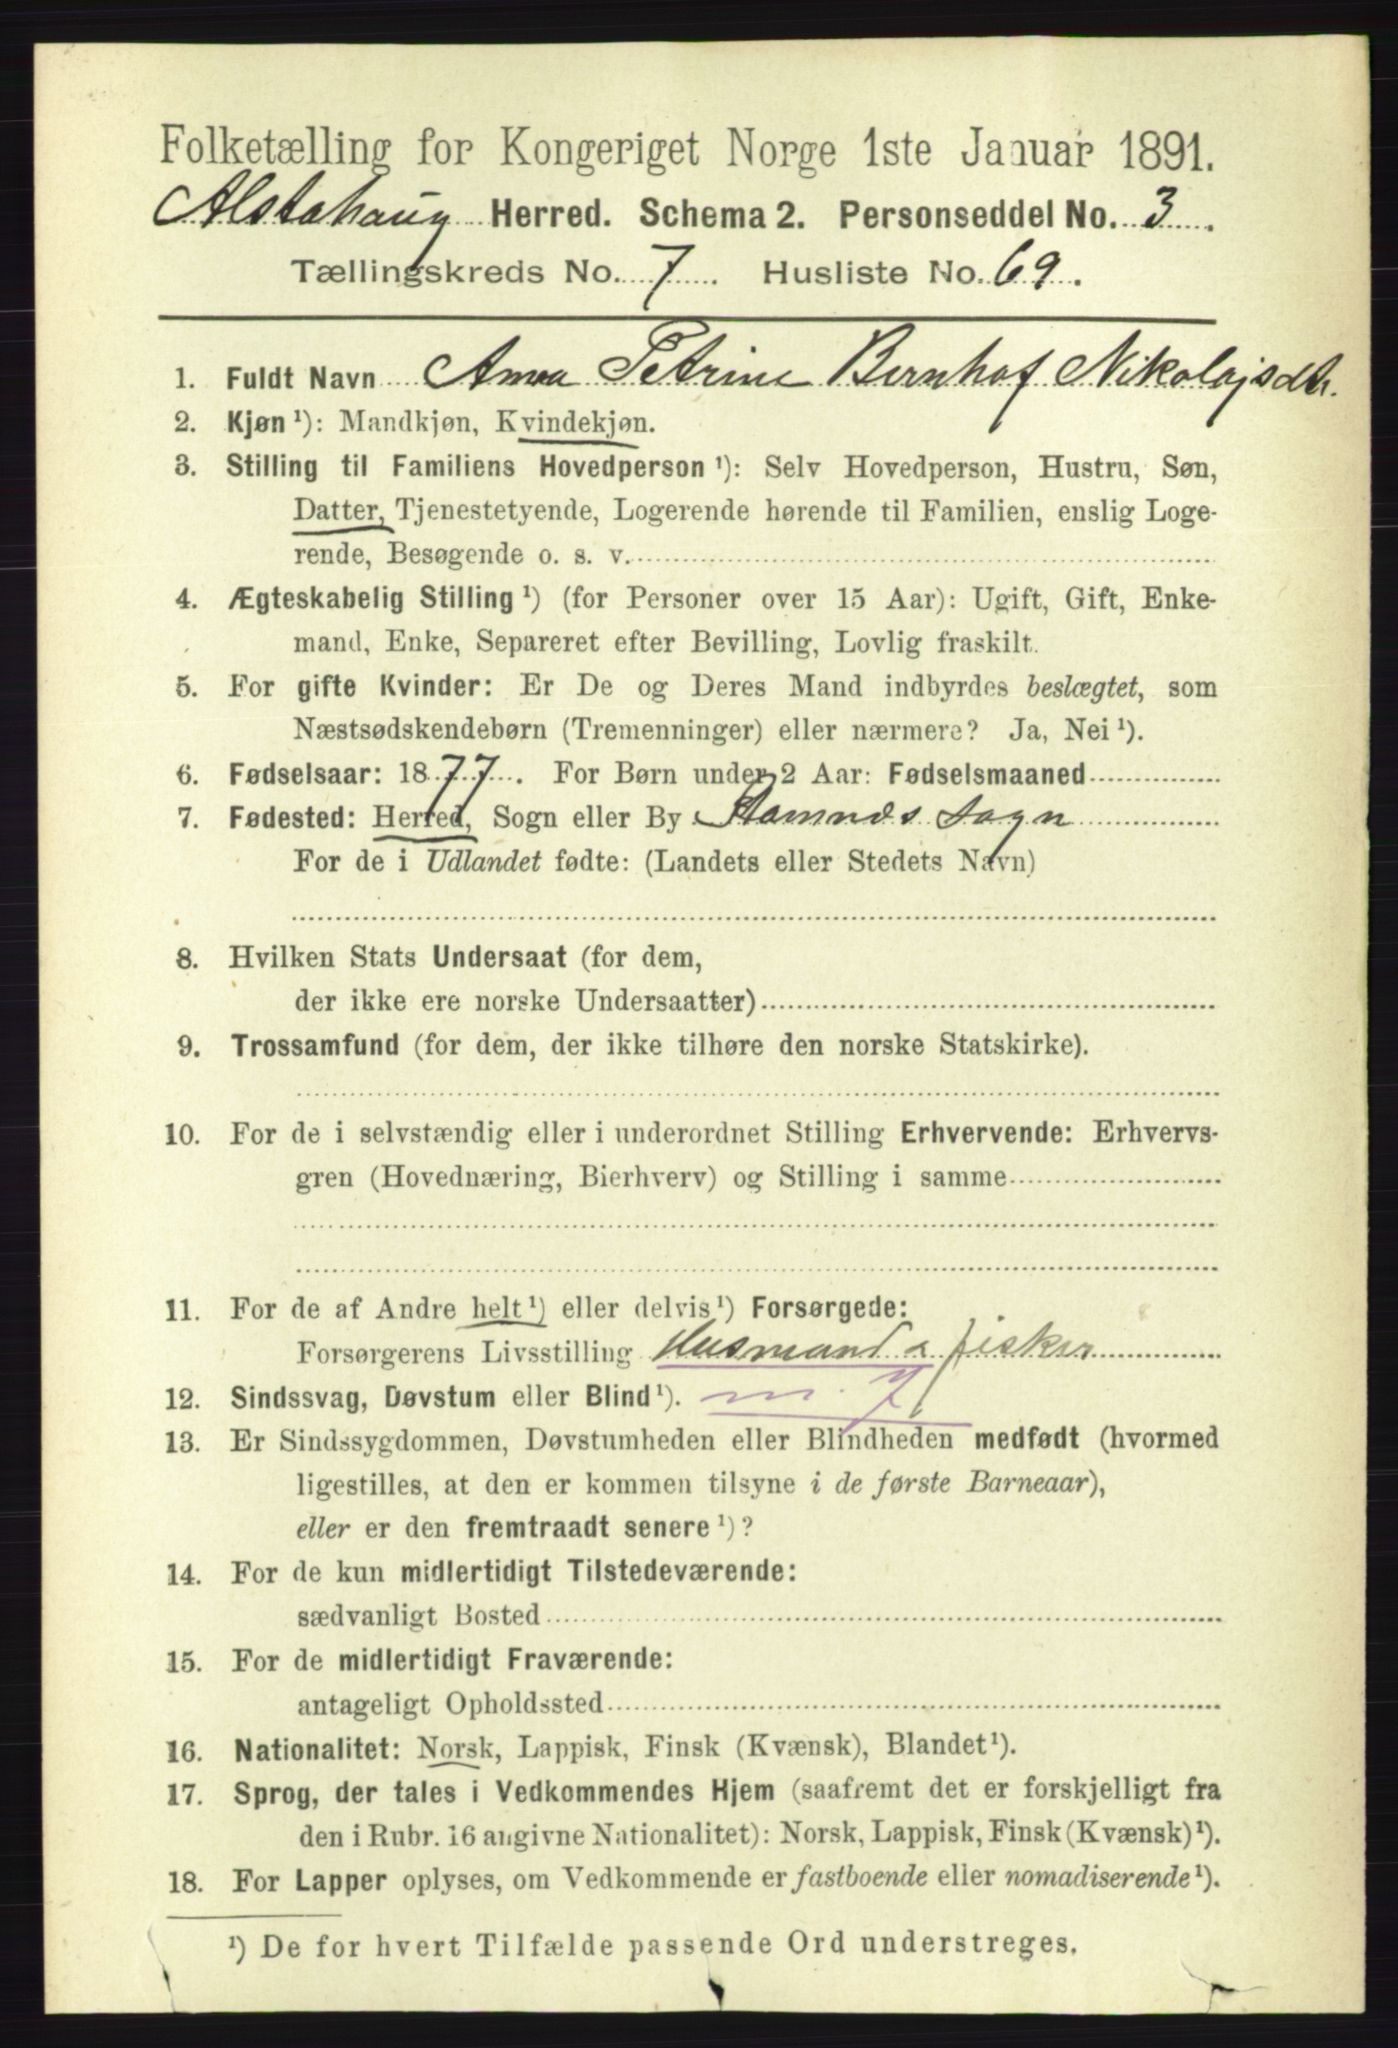 Folketælling for Kongeriget Norge 1ste Januar 1891.
Alstahaug Herred. Schema 2. Personseddel No. 3.
Tællingskreds No. 7. Husliste No. 69.
1. Fuldt Navn Anna Petrine Bernhof Nikolajsdtr.
2. Kjøn ¹): Mandkjøn, Kvindekjøn.
3. Stilling til Familiens Hovedperson ¹): Selv Hovedperson, Hustru, Søn,
Datter, Tjenestetyende, Logerende hørende til Familien, enslig Loge-
rende, Besøgende o. s. v.
4. Ægteskabelig Stilling ¹) (for Personer over 15 Aar): Ugift, Gift, Enke-
mand, Enke, Separeret efter Bevilling, Lovlig fraskilt.
5. For gifte Kvinder: Er De og Deres Mand indbyrdes beslægtet, som
Næstsødskendebørn (Tremenninger) eller nærmere? Ja, Nei ¹).
6. Fødselsaar: 1877. For Børn under 2 Aar: Fødselsmaaned
7. Fødested: Herred, Sogn eller By Stamnæs sogn
For de i Udlandet fødte: (Landets eller Stedets Navn)
8. Hvilken Stats Undersaat (for dem,
der ikke ere norske Undersaatter)
9. Trossamfund (for dem, der ikke tilhøre den norske Statskirke).
10. For de i selvstændig eller i underordnet Stilling Erhvervende: Erhvervs-
gren (Hovednæring, Bierhverv) og Stilling i samme
11. For de af Andre helt ¹) eller delvis ¹) Forsørgede:
Forsørgerens Livsstilling Husmand & fisker
12. Sindssvag, Døvstum eller Blind ¹). m. 7
13. Er Sindssygdommen, Døvstumheden eller Blindheden medfødt (hvormed
ligestilles, at den er kommen tilsyne i de første Barneaar),
eller er den fremtraadt senere ¹)?
14. For de kun midlertidigt Tilstedeværende:
sædvanligt Bosted
15. For de midlertidigt Fraværende:
antageligt Opholdssted
16. Nationalitet: Norsk, Lappisk, Finsk (Kvænsk), Blandet ¹).
17. Sprog, der tales i Vedkommendes Hjem (saafremt det er forskjelligt fra
den i Rubr. 16 angivne Nationalitet): Norsk, Lappisk, Finsk (Kvænsk) ¹).
18. For Lapper oplyses, om Vedkommende er fastboende eller nomadiserende ¹).
¹) De for hvert Tilfælde passende Ord understreges.